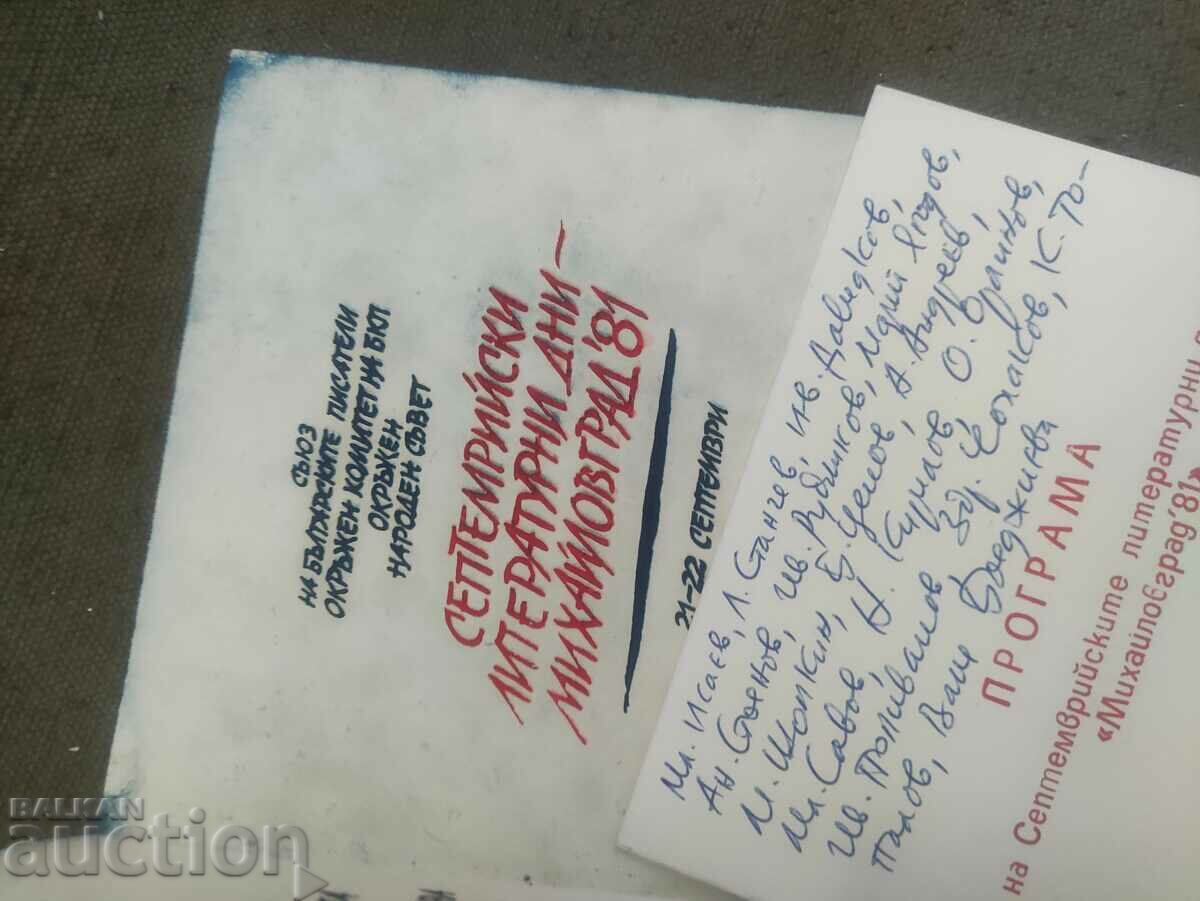 СЪЮЗ
НА БЪЛГАРСКИТЕ ПИСАТЕЛИ
ОКРЪЖЕН КОМИТЕТ НА БКП
ОКРЪЖЕН
НАРОДЕН СЪВЕТ
СЕПТЕМРИЙСКИ
ЛИТЕРАТУРНИ ДНИ –
МИХАЙЛОВГРАД'81
21-22 СЕПТЕМВРИ
Мл. Исаев, Л. Стангев, Ив. Давидков,
Ан. Стоянов, Ив. Рудников, Марий Ягодов,
М. Шопкин, Б. Ценов, А. Андреев,
Мл. Савов, Н. О. Орлинов,
Ив. Поливанов, Здр. К. То-
палов, Ваня Бояджиева
ПРОГРАМА
на Септемврийските литературни
«Михайловград'81»
BALKAN
auction